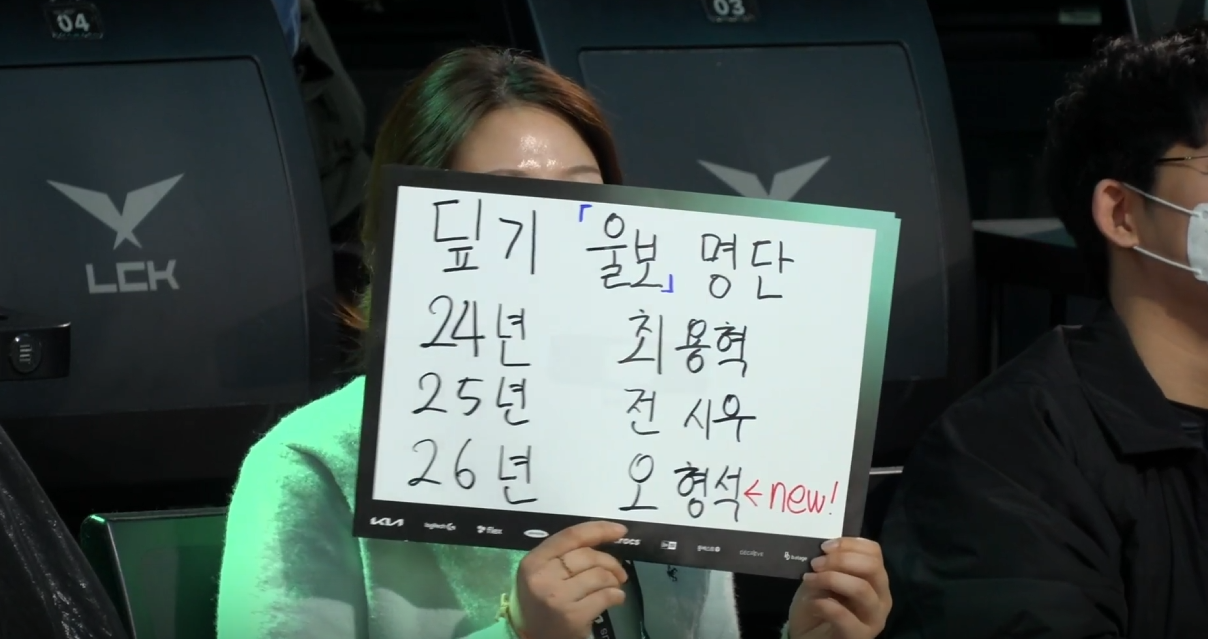 04
03
LCK
딮기 「울보」 명단
24년 최용혁
25년 전시우
26년 오형석 ← new!
KIA logitech G flex crocs